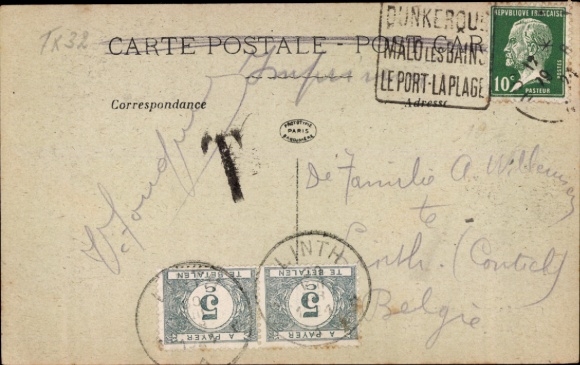 TR 32
CARTE POSTALE - POST CAR
DUNKERQU
MALO LES BAINS
LE PORT-LA PLAGE
REPVBLIQVE FRANÇAISE
POSTES
10c
PASTEUR
Correspondance
Adresse
PARIS
T
De Familie A. Willemsen
te
(Contich)
Belgie
LINTH
TE BETALEN
5
A PAYER
TE BETALEN
5
A PAYER